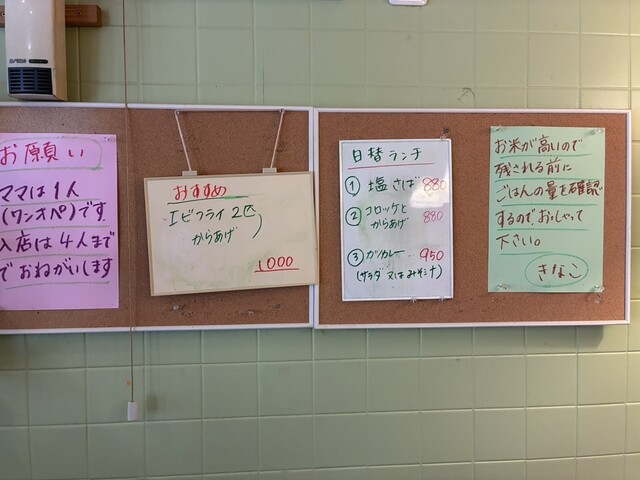 お願い
ママは1人
(ワンオペ)です
入店は4人まで
でおねがいします
おすすめ
エビフライ2匹
からあげ
1000
日替ランチ
① 塩さば 880
② コロッケと
からあげ 880
③ カツカレー 950
(サラダ又はみそ汁)
お米が高いので
残される前に
ごはんの量を確認
するので、おっしゃって
下さい。
きなこ